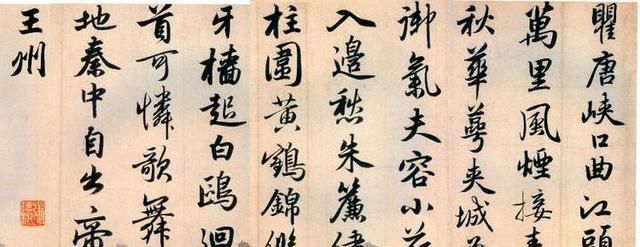 瞿唐峽口曲江頭
萬里風煙接
秋華萼夾城
御氣夫容小
入邊愁朱簾
柱圍黃鶴錦
牙檣起白鷗迴
首可憐歌舞
地秦中自古帝
王州